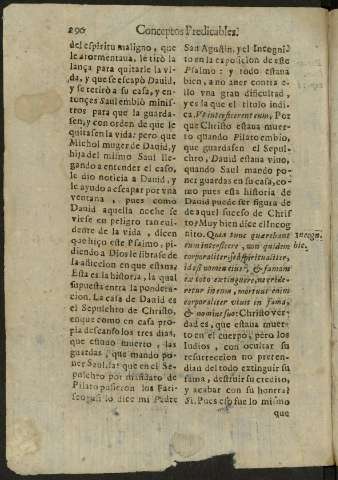 290 Conceptos Predicables.
del espiritu maligno, que
le atormentaua, le tirò la
lança para quitarle la vi-
da, y que se escapò Dauid,
y se retirò a su casa, y en-
tonçes Saul embiò minis-
tros para que la guarda-
sen, y con orden de que le
quitasen la vida: pero que
Michol muger de Dauid, y
hija del mismo Saul lle-
gando a entender el caso,
le dio noticia a Dauid, y
le ayudo a escapar por vna
ventana, pues como
Dauid aquella noche se
viese en peligro tan eui-
dente de la vida, dicen
que hiço este Psalmo, pi-
diendo a Dios le librase de
la afliccion en que estaua.
Esta es la historia, la qual
supuesta entra la pondera-
cion. La casa de Dauid es
el Sepulchro de Christo,
en que como en casa pro-
pia descansò los tres dias,
que estuuo muerto, las
guardas, que mando po-
ner Saul, las que en el Se-
pulchro por mandato de
Pilato pusieron los Fari-
seos: assi lo dice mi Padre
San Agustin, y el Incogni-
to en la exposicion de este
Psalmo: y todo estaua
bien, a no auer contra e-
llo vna gran dificultad,
y es la que el titulo indi-
ca. Vt interficerent eum, Por
que Christo estaua muer-
to quando Pilato embiò,
que guardasen el Sepul-
chro, Dauid estaua viuo,
quando Saul mando po-
ner guardas en su casa, co-
mo pues esta historia de
Dauid puede ser figura de
de aquel suceso de Chris-
to? Muy bien dice el Incog-
nito. Quia tunc quærebant
eum interficere, non quidem
corporaliter: sed spiritualiter,
id est nomen eius, & famam
ex toto extinguere, ne vide-
retur in eum, mortuus enim
corporaliter viuit in fama,
& nomine suo: Christo ver-
dad es, que estaua muer-
to en el cuerpo, pero los
Iudios, con ocultar su
resurreccion no preten-
dian del todo extinguir su
fama, destruir su credito,
y acabar con su honera?
Si. Pues eso fue lo mismo
que
Incogn.
hic.